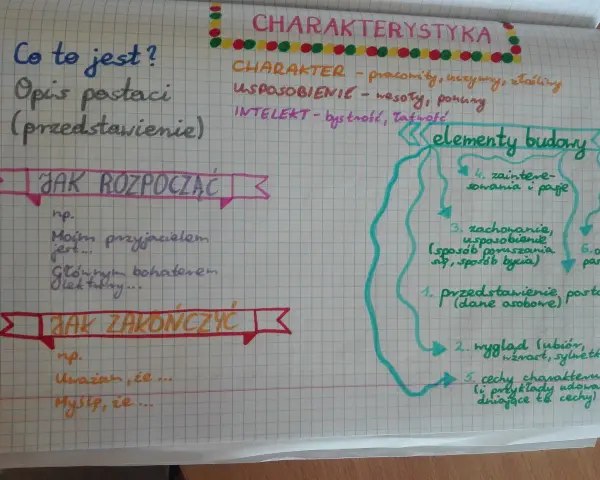 CHARAKTERYSTYKA
Co to jest?
Opis postaci
(przedstawienie)
CHARAKTER – pracowity, uczynny, złośliwy
USPOSOBIENIE – wesoły, ponury
INTELEKT – bystrość, łatwość
JAK ROZPOCZĄĆ
np.
Moim przyjacielem
jest...
Głównym bohaterem
lektury...
JAK ZAKOŃCZYĆ
np.
Uważam, że...
Myślę, że...
elementy budowy
4. zaintere-
sowania i pasje
3. zachowanie,
usposobienie
(sposób poruszania
się, sposób bycia)
6.
1. przedstawienie
(dane osobowe)
2. wygląd (ubiór,
wzrost,
5. cechy charakteru
(i przykłady
dniające te cechy)